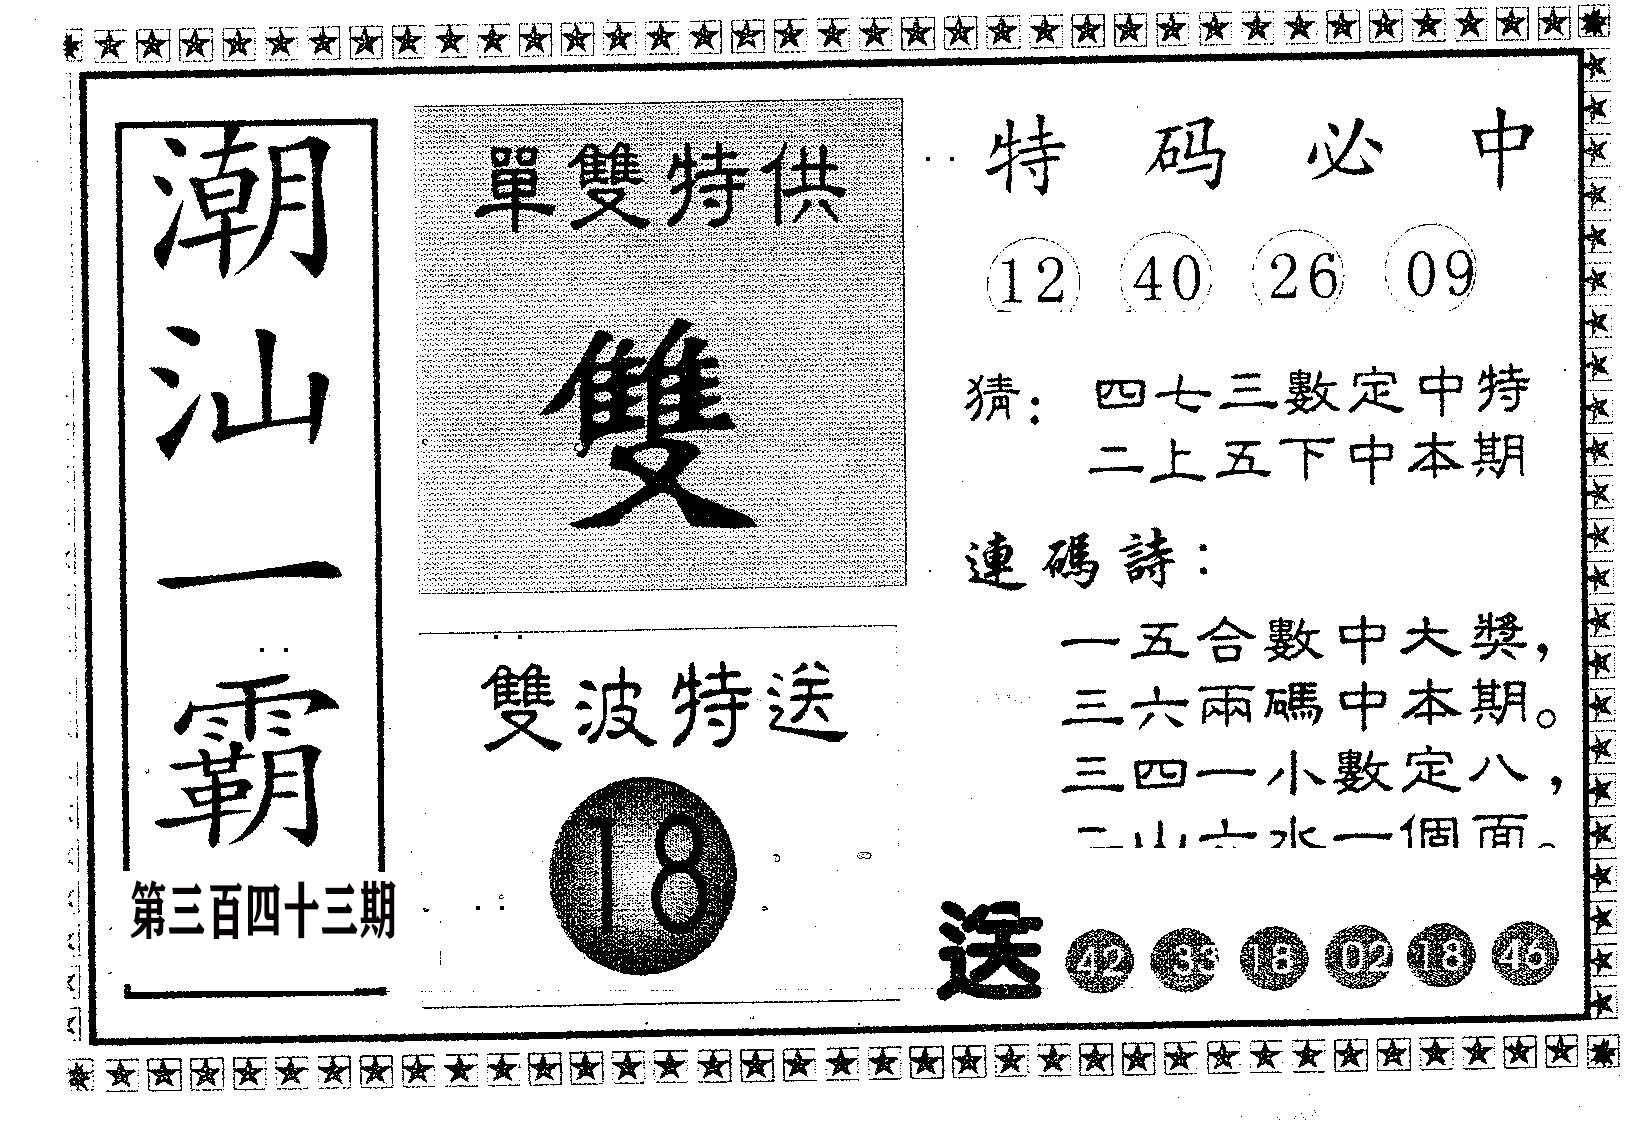 潮汕一霸
第三百四十三期
單雙特供
雙
雙波特送
18
特码必中
12 40 26 09
猜：四七三數定中特
二上五下中本期
連碼詩：
一五合數中大獎，
三六兩碼中本期。
三四一小數定八，
二山六水一個面。
送 42 33 18 02 18 46